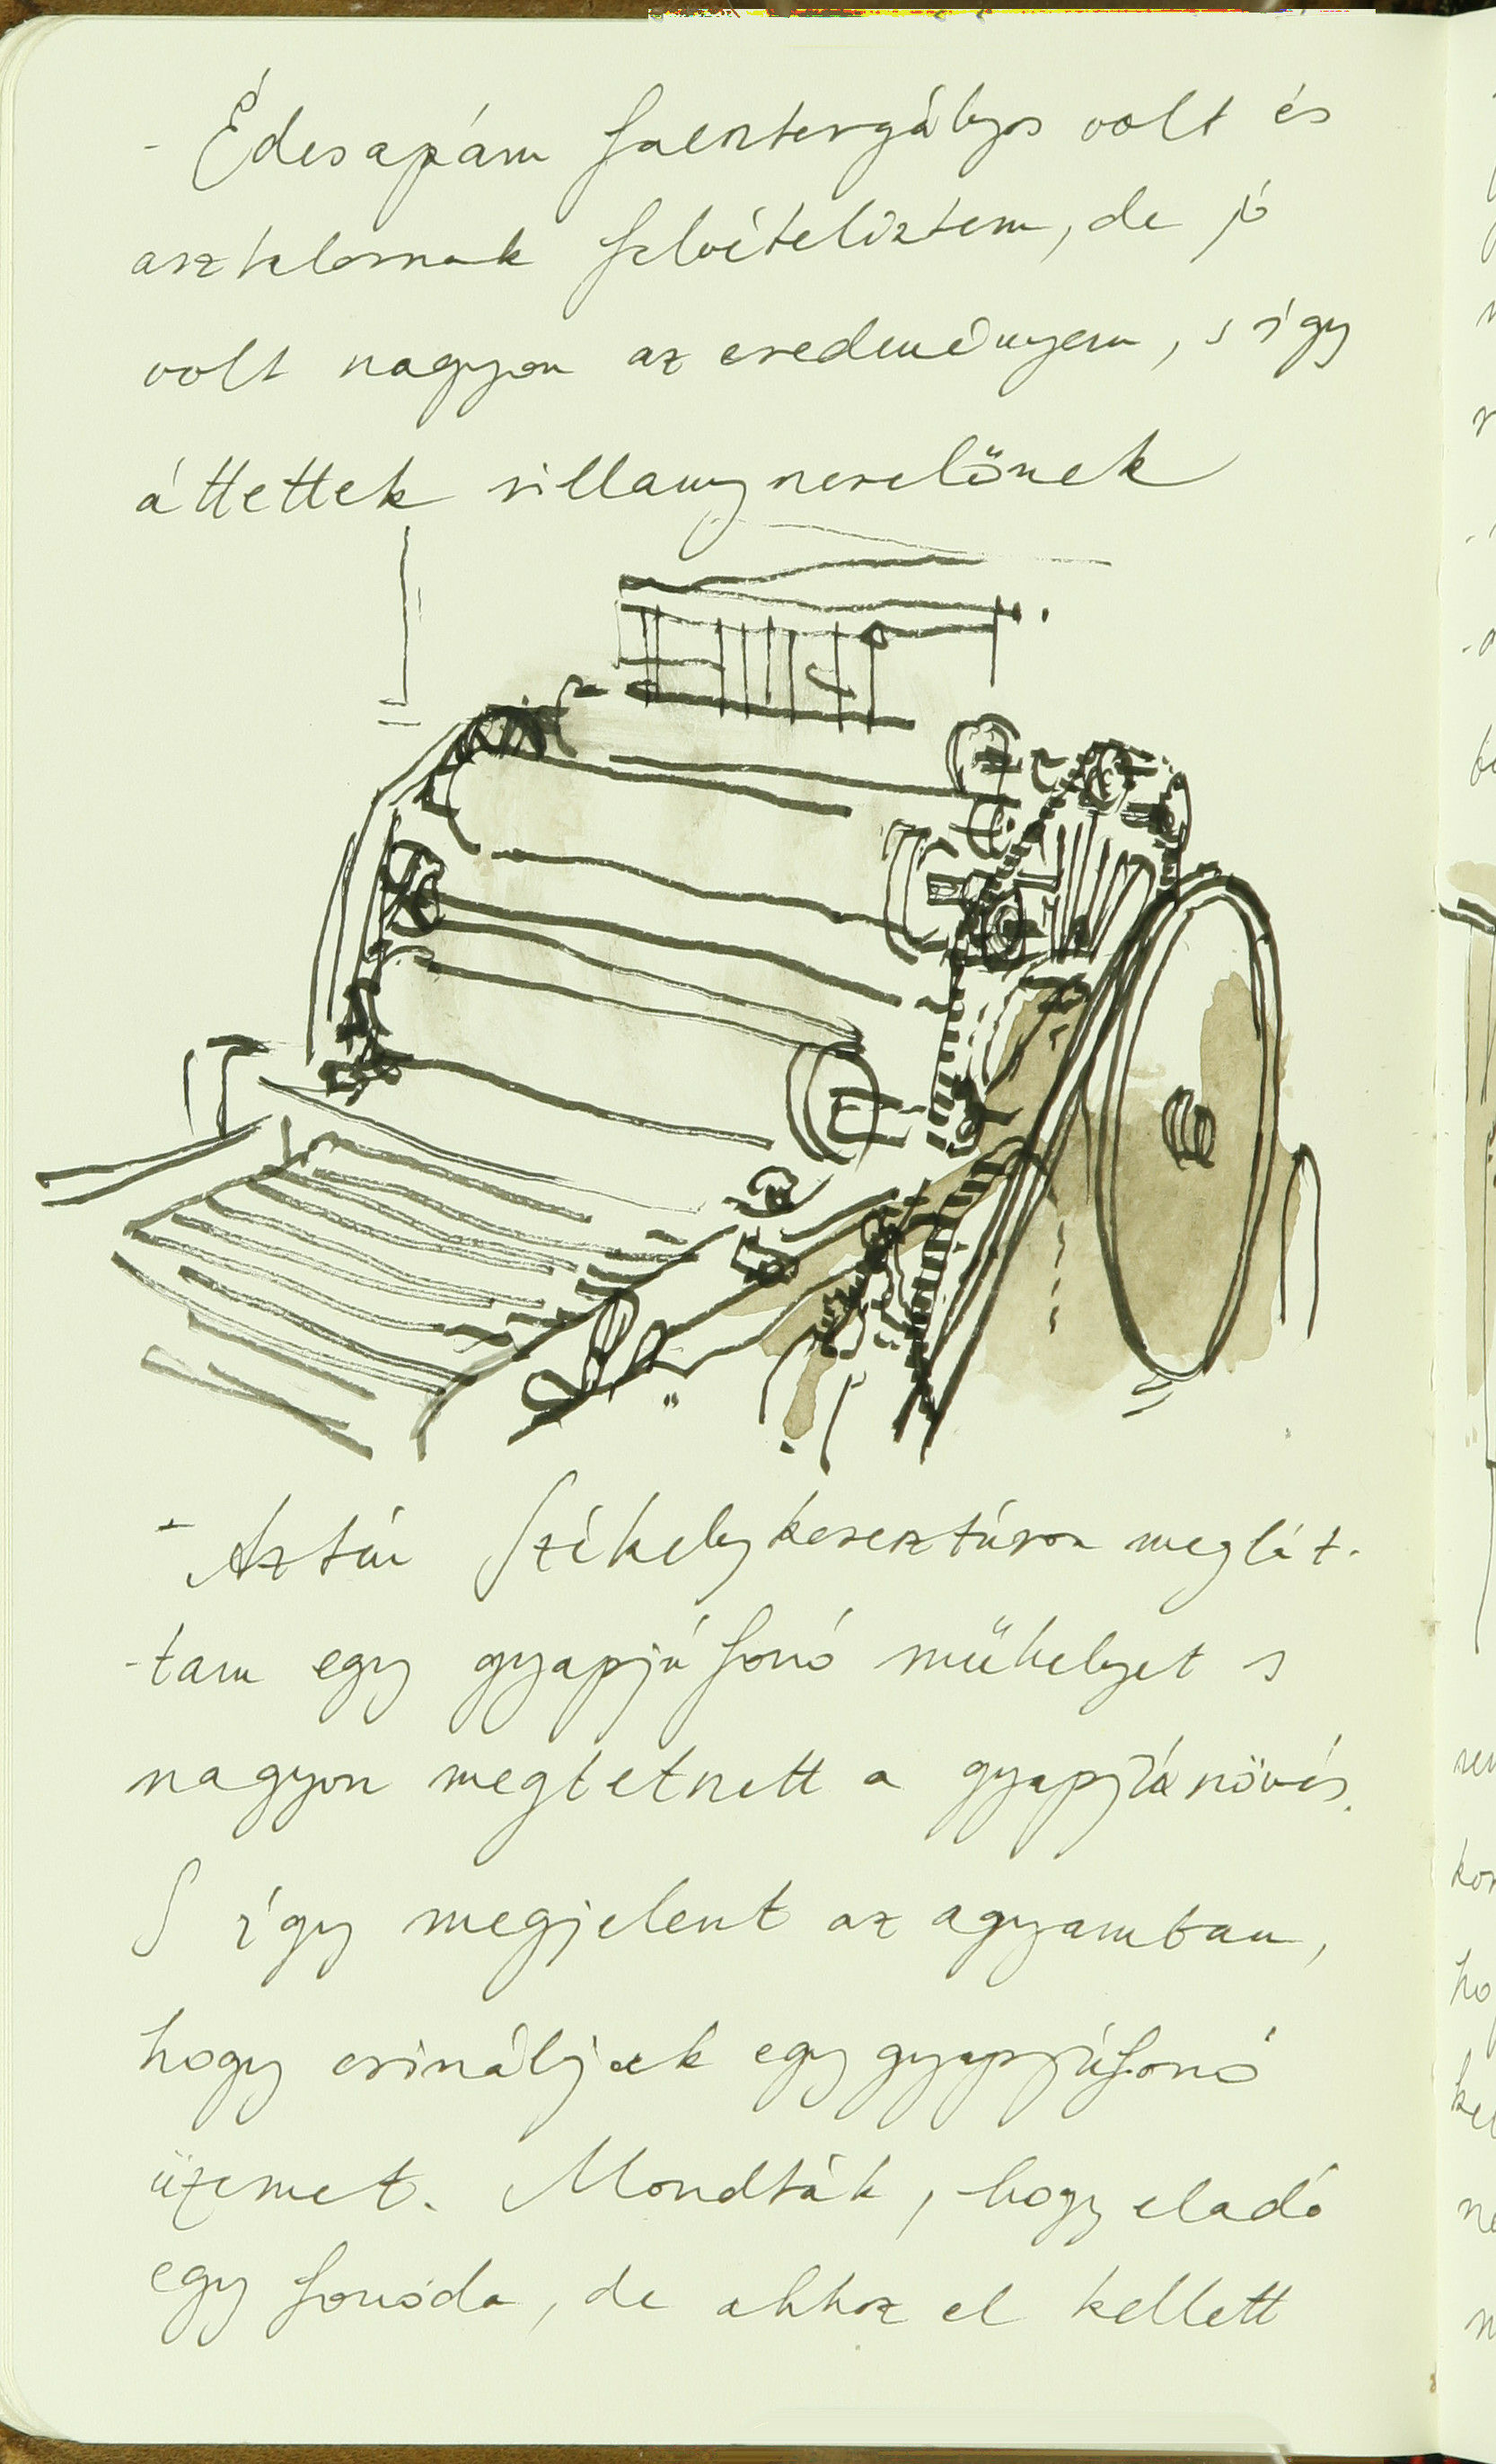 - Édesapám faesztergályos volt és
asztalosnak felvételiztem, de jó
volt nagyon az eredményem, s így
áttettek villanyszerelőnek
- Aztán Székelykeresztúron meglát-
-tam egy gyapjúfonó műhelyet s
nagyon megtetszett a gyapjú
S így megjelent az agyamban,
hogy csináljak egy gyapjúfonó
üzemet. Mondták, hogy eladó
egy fonóda, de ahhoz el kellett